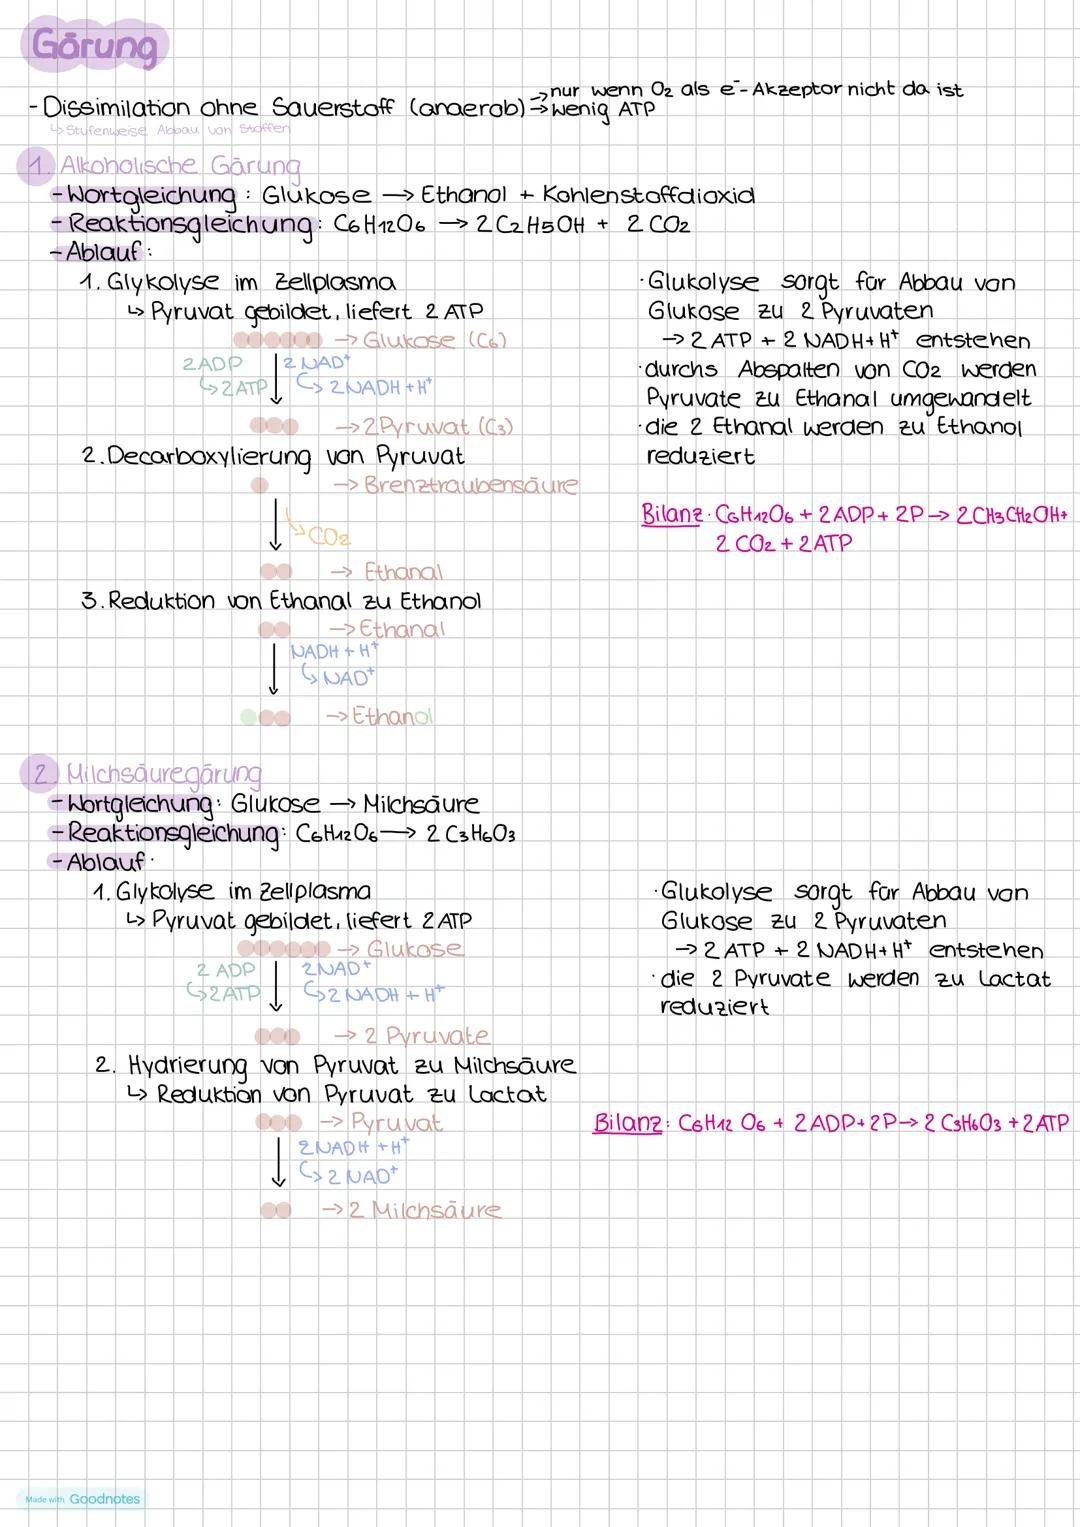 Gärung
- Dissimilation ohne Sauerstoff (anaerob) → nur wenn O2 als e⁻-Akzeptor nicht da ist
→ wenig ATP
↳ Stufenweise Abbau von Stoffen
1. Alkoholische Gärung
- Wortgleichung: Glukose → Ethanol + Kohlenstoffdioxid
- Reaktionsgleichung: C6H12O6 → 2 C2H5OH + 2 CO2
- Ablauf:
1. Glykolyse im Zellplasma
↳ Pyruvat gebildet, liefert 2 ATP
→ Glukose (C6)
2 ADP 2 NAD⁺
↳ 2 ATP ↳ 2 NADH + H⁺
→ 2 Pyruvat (C3)
2. Decarboxylierung von Pyruvat
→ Brenztraubensäure
↳ CO2
→ Ethanal
3. Reduktion von Ethanal zu Ethanol
→ Ethanal
NADH + H⁺
↳ NAD⁺
→ Ethanol
· Glukolyse sorgt für Abbau von
Glukose zu 2 Pyruvaten
→ 2 ATP + 2 NADH + H⁺ entstehen
· durchs Abspalten von CO2 werden
Pyruvate zu Ethanal umgewandelt
· die 2 Ethanal werden zu Ethanol
reduziert
Bilanz: C6H12O6 + 2 ADP + 2P → 2 CH3CH2OH +
2 CO2 + 2 ATP
2. Milchsäuregärung
- Wortgleichung: Glukose → Milchsäure
- Reaktionsgleichung: C6H12O6 → 2 C3H6O3
- Ablauf:
1. Glykolyse im Zellplasma
↳ Pyruvat gebildet, liefert 2 ATP
→ Glukose
2 ADP 2 NAD⁺
↳ 2 ATP ↳ 2 NADH + H⁺
→ 2 Pyruvate
2. Hydrierung von Pyruvat zu Milchsäure
↳ Reduktion von Pyruvat zu Lactat
→ Pyruvat
2 NADH + H⁺
↳ 2 NAD⁺
→ 2 Milchsäure
· Glukolyse sorgt für Abbau von
Glukose zu 2 Pyruvaten
→ 2 ATP + 2 NADH + H⁺ entstehen
· die 2 Pyruvate werden zu Lactat
reduziert
Bilanz: C6H12O6 + 2 ADP + 2P → 2 C3H6O3 + 2 ATP
Made with Goodnotes